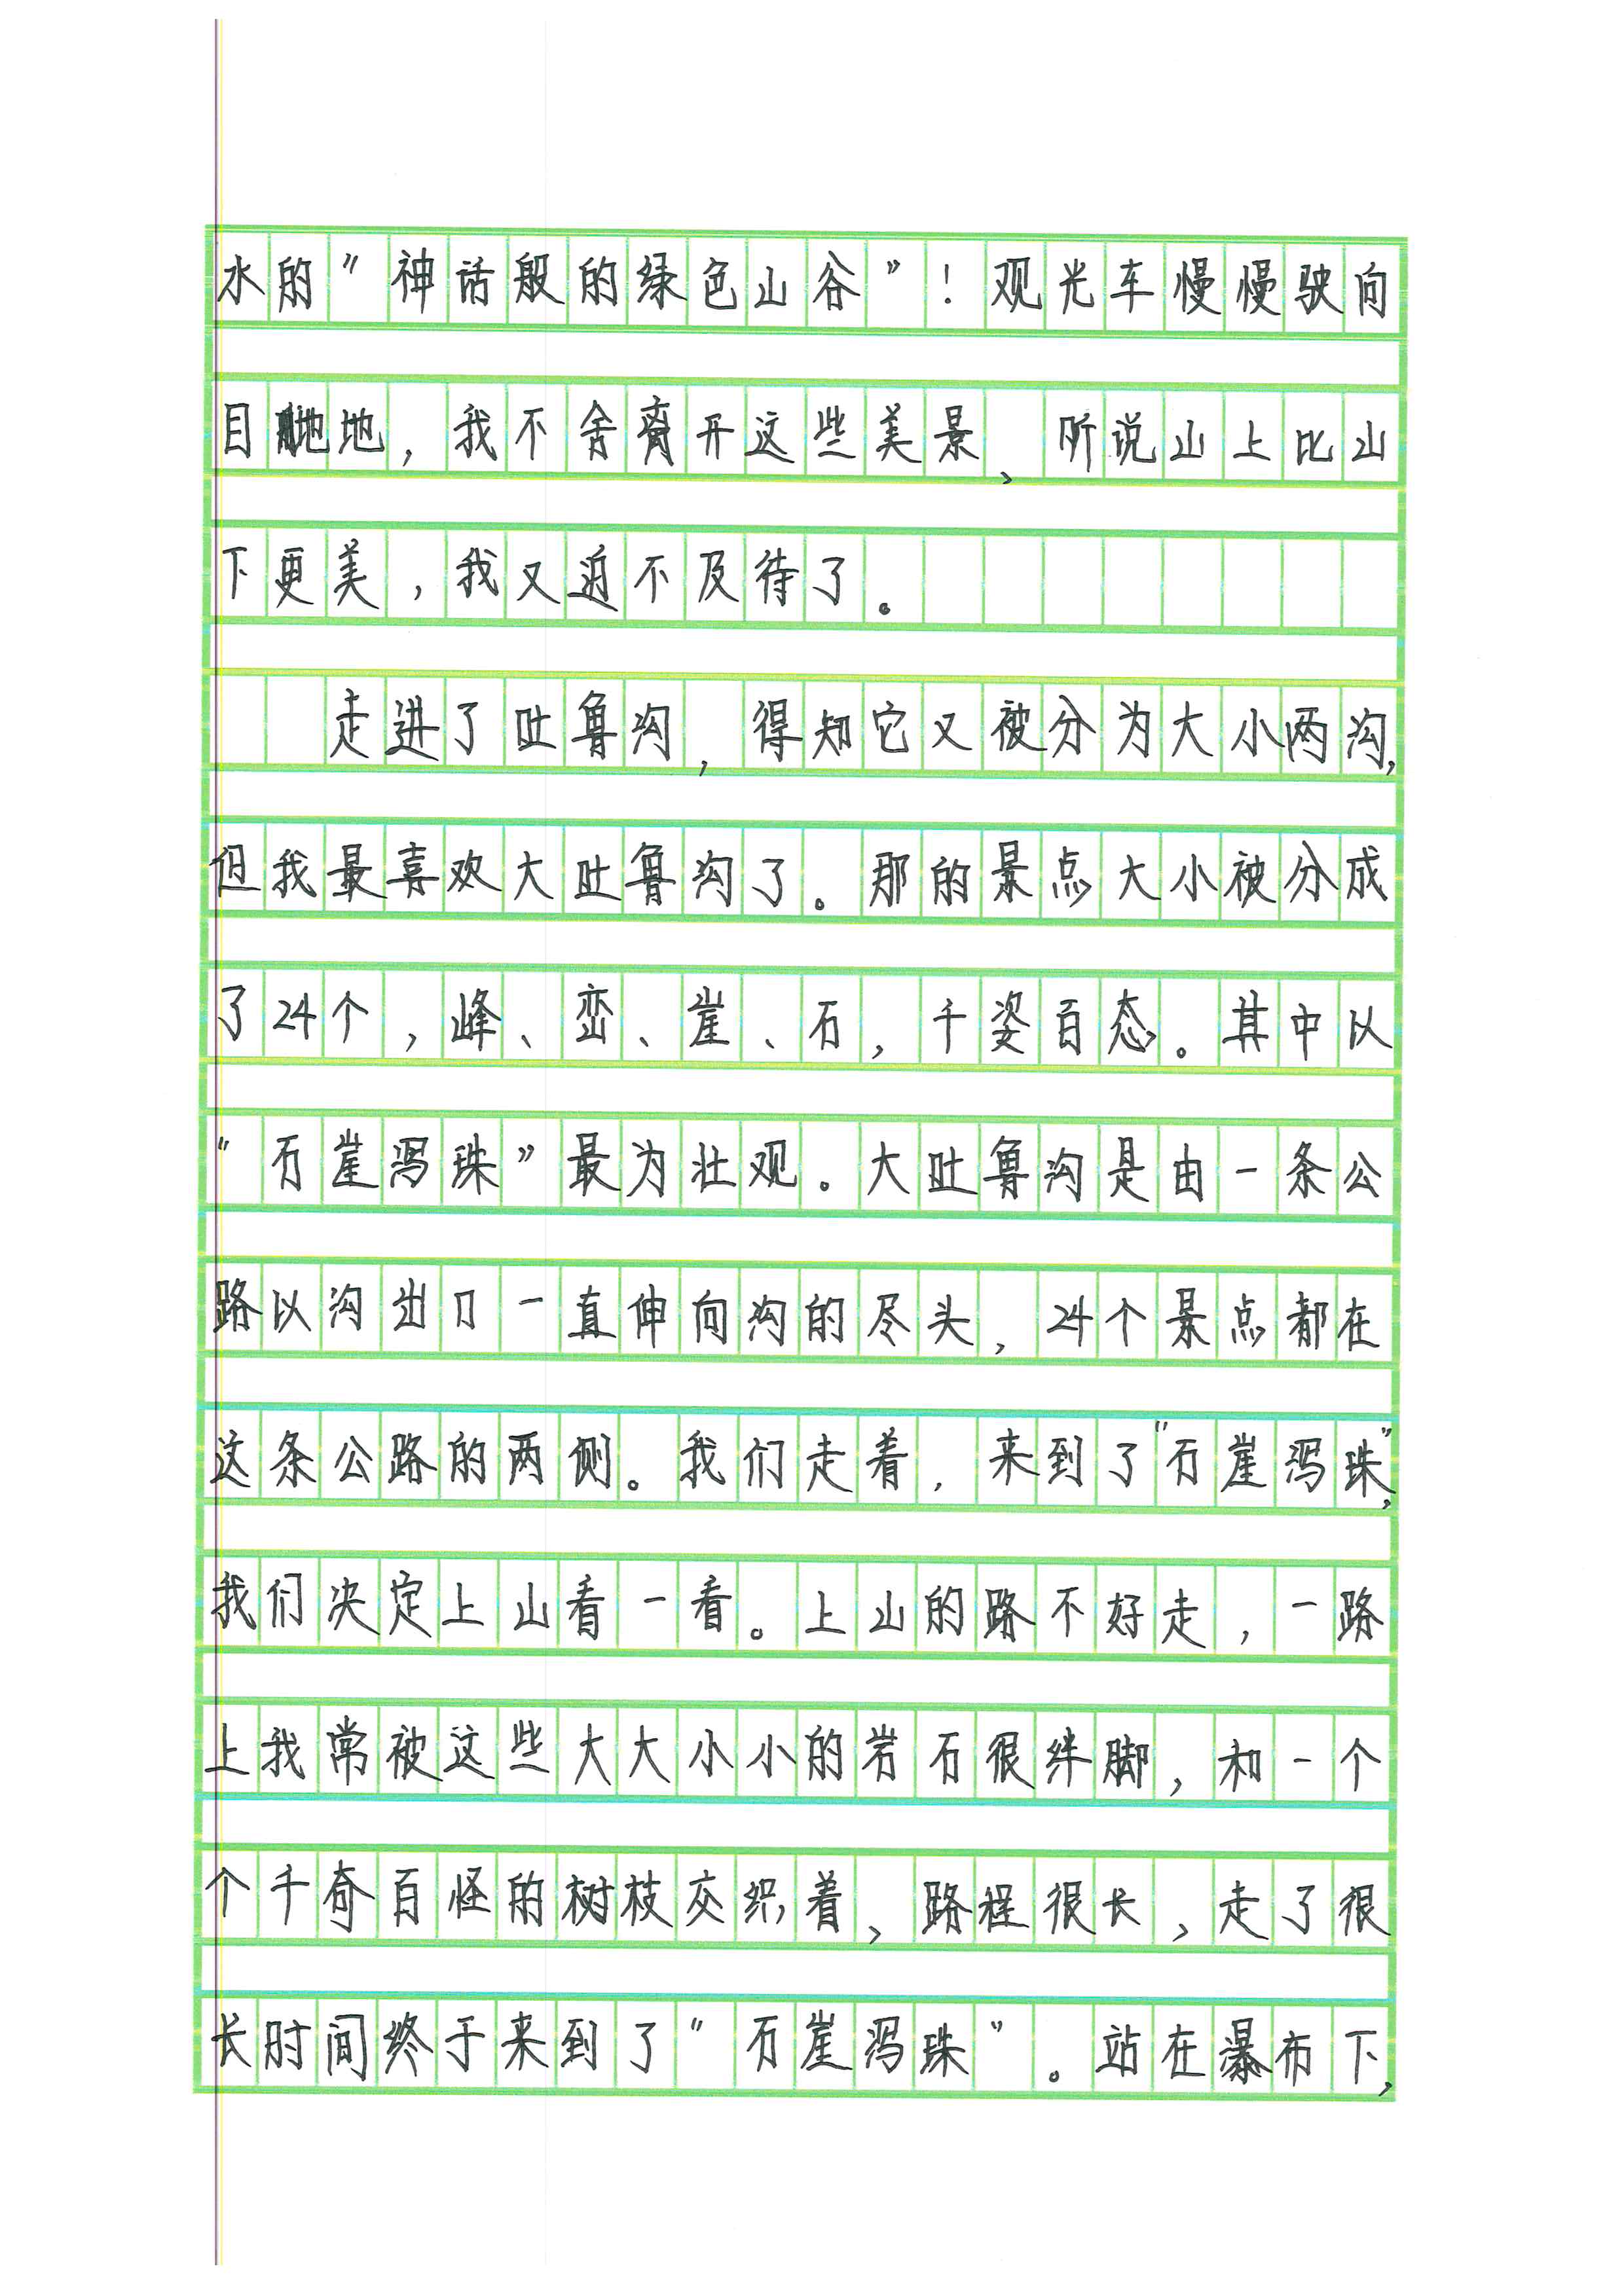 水的“神话般的绿色山谷”！观光车慢慢驶向
目地，我不舍离开这些美景、听说山上比山
下更美，我又迫不及待了。
走进了吐鲁沟，得知它又被分为大小两沟，
但我最喜欢大吐鲁沟了。那的景点大小被分成
了24个，峰、峦、崖、石，千姿百态。其中以
“石崖泻珠”最为壮观。大吐鲁沟是由一条公
路以沟出口一直伸向沟的尽头，24个景点都在
这条公路的两侧。我们走着，来到了“石崖泻珠”，
我们决定上山看一看。上山的路不好走，一路
上我常被这些大大小小的岩石很绊脚，和一个
个千奇百怪的树枝交织着、路程很长，走了很
长时间终于来到了“石崖泻珠”。站在瀑布下，